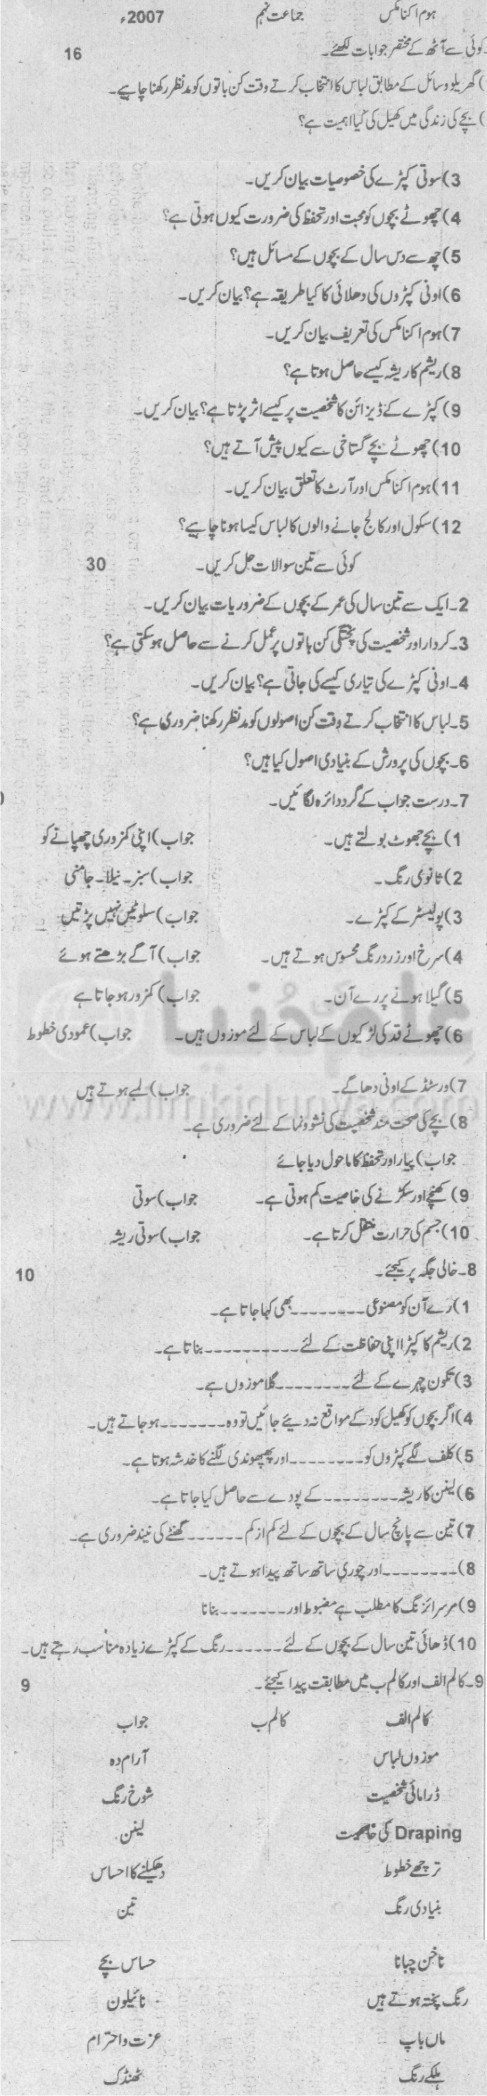 ہوم اکنامکس جماعت نہم 2007ء
کوئی سے آٹھ کے مختصر جوابات لکھئے۔ 16
)گھریلو وسائل کے مطابق لباس کا انتخاب کرتے وقت کن باتوں کو مدنظر رکھنا چاہیے۔
)بچے کی زندگی میں کھیل کی کیا اہمیت ہے؟
3)سوتی کپڑے کی خصوصیات بیان کریں۔
4)چھوٹے بچوں کو محبت اور تحفظ کی ضرورت کیوں ہوتی ہے؟
5)چھ سے دس سال کے بچوں کے مسائل ہیں؟
6)اونی کپڑوں کی دھلائی کا کیا طریقہ ہے؟ بیان کریں۔
7)ہوم اکنامکس کی تعریف بیان کریں۔
8)ریشم کا ریشہ کیسے حاصل ہوتا ہے؟
9)کپڑے کے ڈیزائن کا شخصیت پر کیسے اثر پڑتا ہے؟ بیان کریں۔
10)چھوٹے بچے گستاخی سے کیوں پیش آتے ہیں؟
11)ہوم اکنامکس اور آرٹ کا تعلق بیان کریں۔
12)سکول اور کالج جانے والوں کا لباس کیسا ہونا چاہیے؟
کوئی سے تین سوالات حل کریں۔ 30
2۔ایک سے تین سال کی عمر کے بچوں کے ضروریات بیان کریں۔
3۔کردار اور شخصیت کی پختگی کن باتوں پر عمل کرنے سے حاصل ہو سکتی ہے؟
4۔اونی کپڑے کی تیاری کیسے کی جاتی ہے؟ بیان کریں۔
5۔لباس کا انتخاب کرتے وقت کن اصولوں کو مدنظر رکھنا ضروری ہے؟
6۔بچوں کی پرورش کے بنیادی اصول کیا ہیں؟
7۔درست جواب کے گرد دائرہ لگائیں۔
1)بچے جھوٹ بولتے ہیں۔ جواب)اپنی کمزوری چھپانے کو
2)ثانوی رنگ۔ جواب)سبز۔نیلا۔جامنی
3)پولیسٹر کے کپڑے۔ جواب)سلوٹیں نہیں پڑتیں
4)سرخ اور زرد رنگ محسوس ہوتے ہیں۔ جواب)آگے بڑھتے ہوئے
5)گیلا ہونے پر رے آن۔ جواب)کمزور ہو جاتا ہے
6)چھوٹے قد کی لڑکیوں کے لباس کے لئے موزوں ہیں۔ جواب)عمودی خطوط
7)ورسٹڈ کے اونی دھاگے۔ جواب)لمبے ہوتے ہیں
8)بچے کی صحت مند شخصیت کی نشوونما کے لئے ضروری ہے۔
جواب)پیار اور تحفظ کا ماحول دیا جائے
9)کھنچنے اور سکڑنے کی خاصیت کم ہوتی ہے۔ جواب)سوتی
10)جسم کی حرارت منتقل کرتا ہے۔ جواب)سوتی ریشہ
8۔خالی جگہ پر کیجئے۔ 10
1)رے آن کو مصنوعی--------بھی کہا جاتا ہے۔
2)ریشم کا کیڑا اپنی حفاظت کے لئے----------بناتا ہے۔
3)تکون چہرے کے لئے--------گلا موزوں ہے۔
4)اگر بچوں کو کھیل کود کے مواقع نہ دیئے جائیں تو وہ-------ہو جاتے ہیں۔
5)کلف لگے کپڑوں کو--------اور پھپھوندی لگنے کا خدشہ ہوتا ہے۔
6)لینن کا ریشہ--------کے پودے سے حاصل کیا جاتا ہے۔
7)تین سے پانچ سال کے بچوں کے لئے کم از کم------گھنٹے کی نیند ضروری ہے۔
8)--------اور چوری ساتھ ساتھ پیدا ہوتے ہیں۔
9)مرسرائزنگ کا مطلب ہے مضبوط اور-------بنانا
10)ڈھائی تین سال کے بچوں کے لئے------رنگ کے کپڑے زیادہ مناسب رہتے ہیں۔
9۔کالم الف اور کالم ب میں مطابقت پیدا کیجئے۔ 9
کالم الف کالم ب جواب
موزوں لباس آرام دہ
ڈرامائی شخصیت شوخ رنگ
Draping کی خاصیت لینن
ترچھے خطوط دھکیلنے کا احساس
بنیادی رنگ تین
ناخن چبانا حساس بچے
رنگ پختہ ہوتے ہیں نائیلون
ماں باپ عزت و احترام
ہلکے رنگ ٹھنڈک
علم کی دنیا